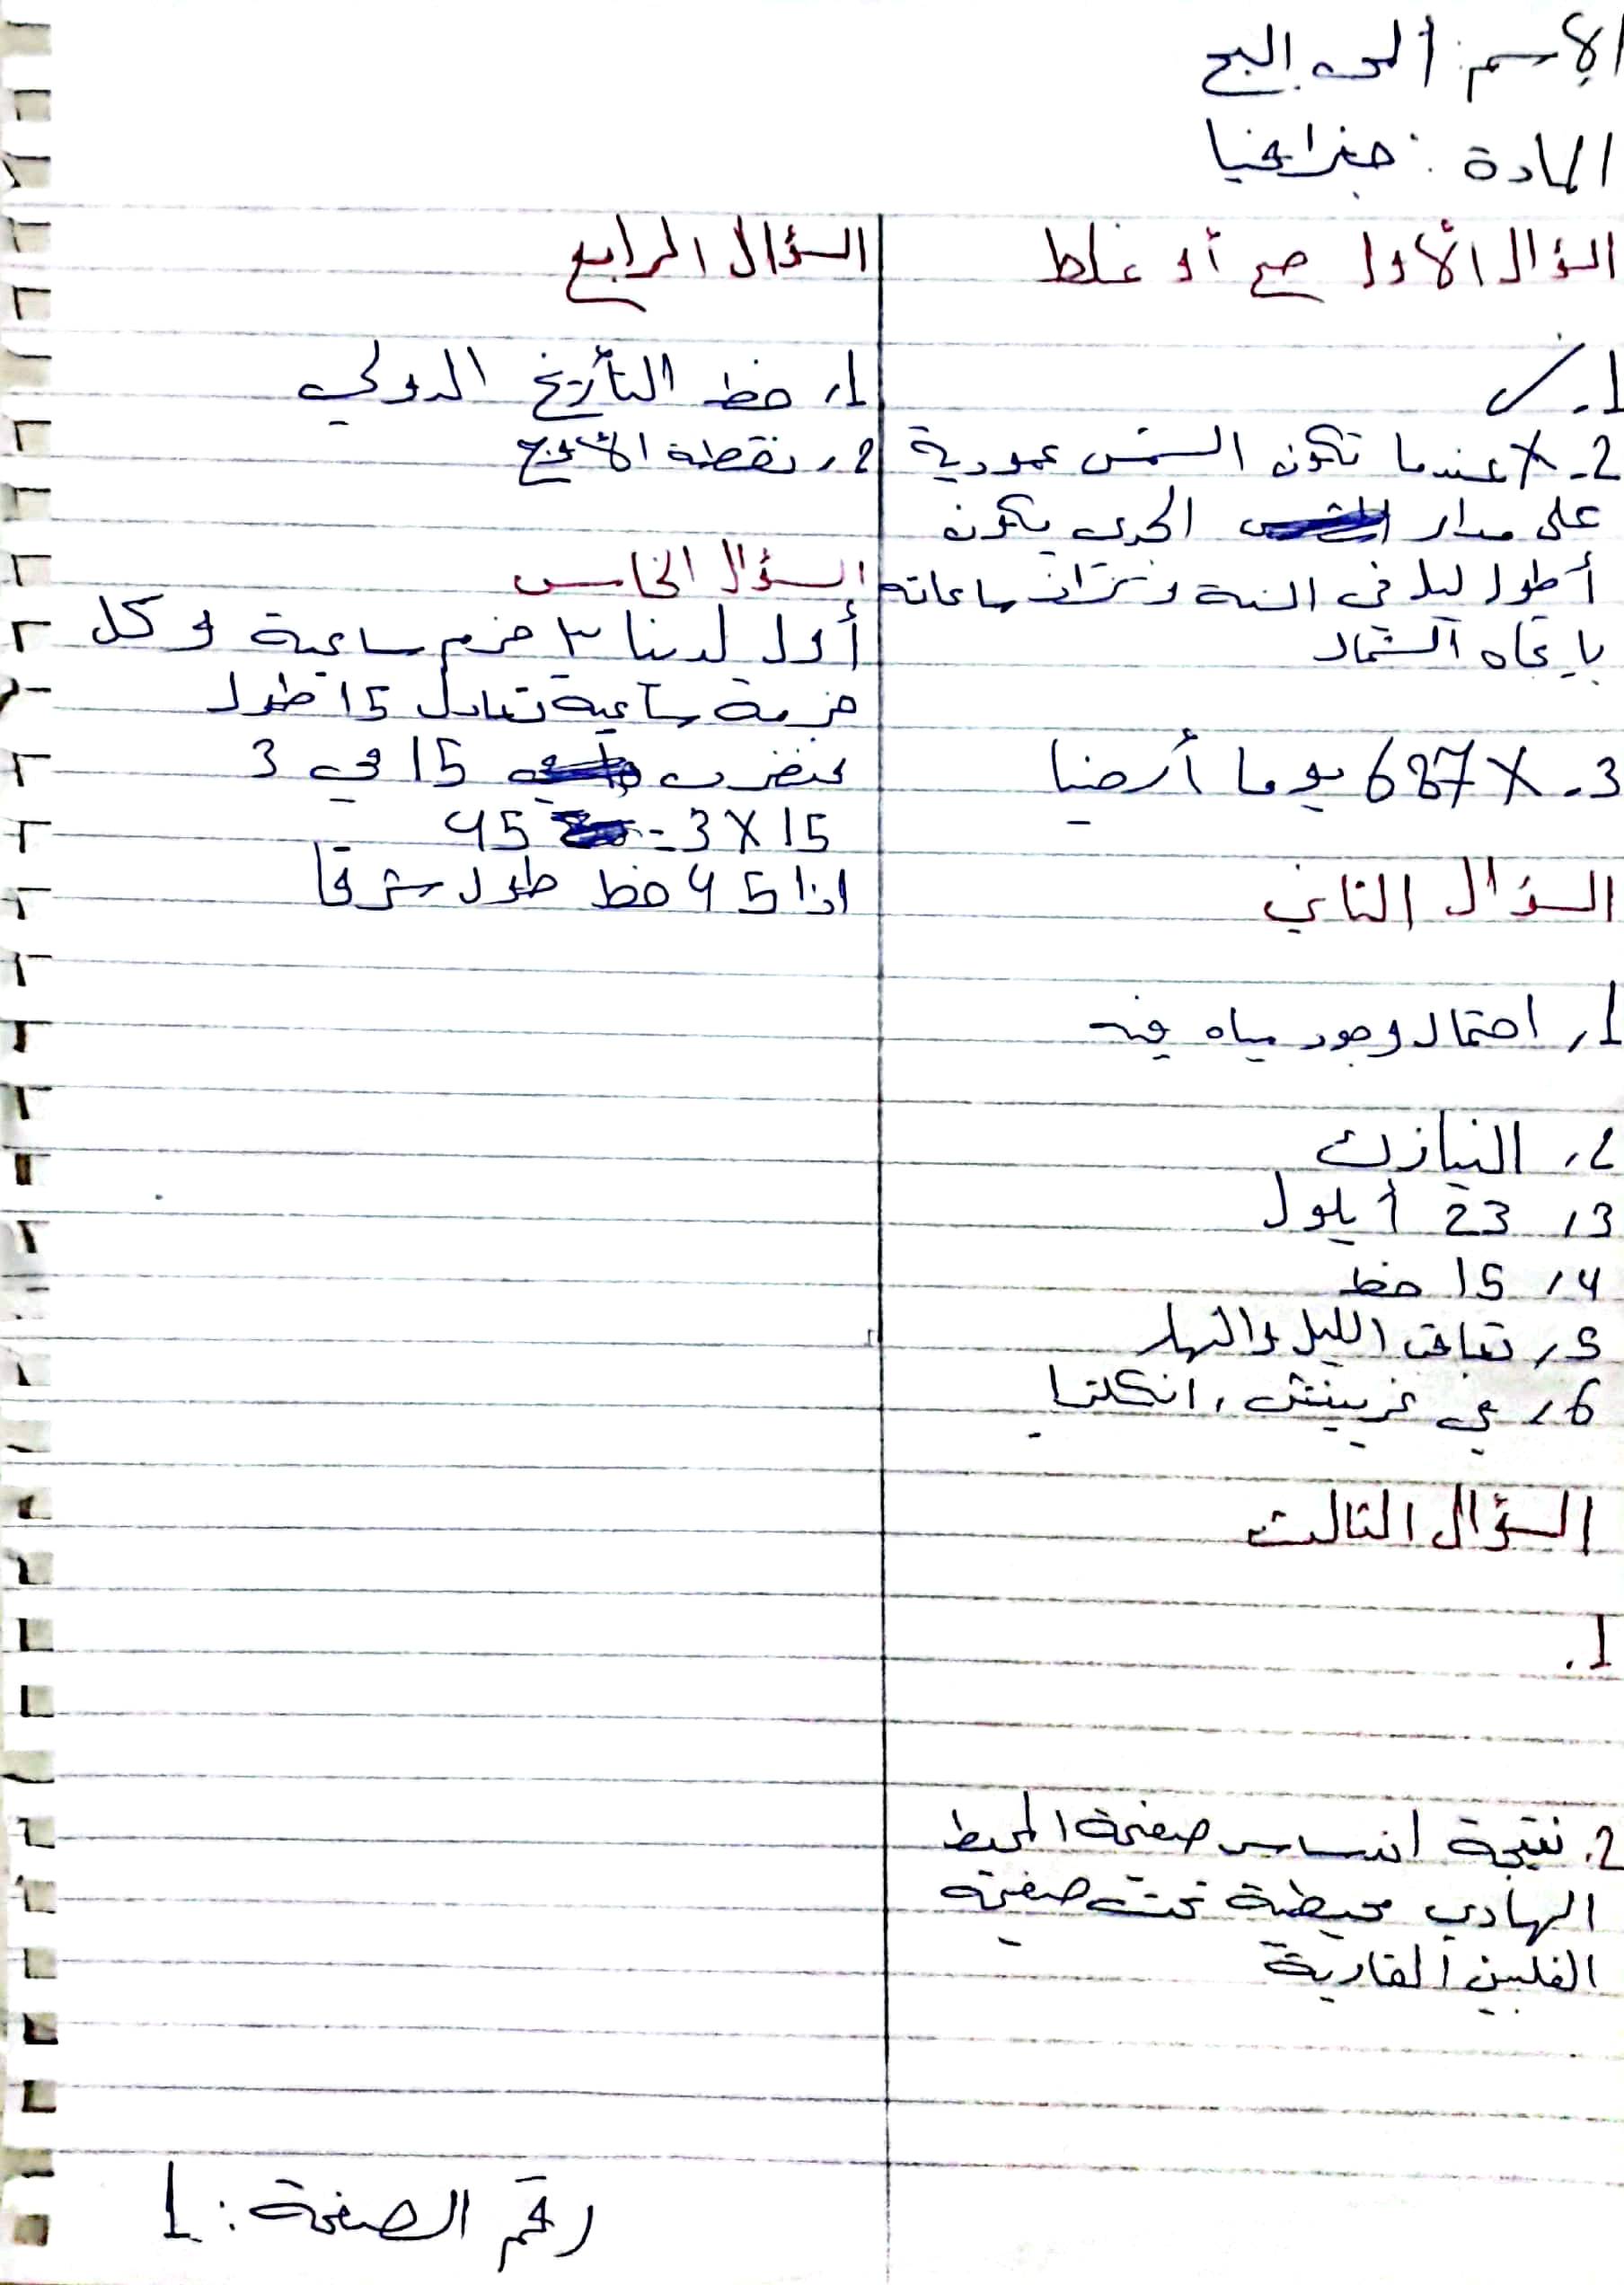 الإسم:
المادة: جغرافيا
السؤال الأول صح أو غلط
1. ✓
2. X عندما تكون الشمس عمودية
على مدار الجدي يكون
أطول ليل في السنة و تتزايد ساعاته
باتجاه الشمال
3. X 687 يوما أرضيا
السؤال الثاني
1, احتمال وجود مياه فيه
2, النيازك
3, 23 أيلول
4, 15 خط
5, تعاقب الليل والنهار
6, في غرينتش, انكلترا
السؤال الثالث
1.
2. نتيجة اندساس صفيحة المحيط
الهادي محيطية تحت صفيحة
الفلبين القارية
السؤال الرابع
1, خط التأريخ الدولي
2, نقطة الأوج
السؤال الخامس
أول لدينا ٣ حزم ساعية و كل
حزمة ساعية تعادل 15 طول
فنضرب 15 في 3
15 X 3 = 45
اذا 45 خط طول شرقا
رقم الصفحة: 1